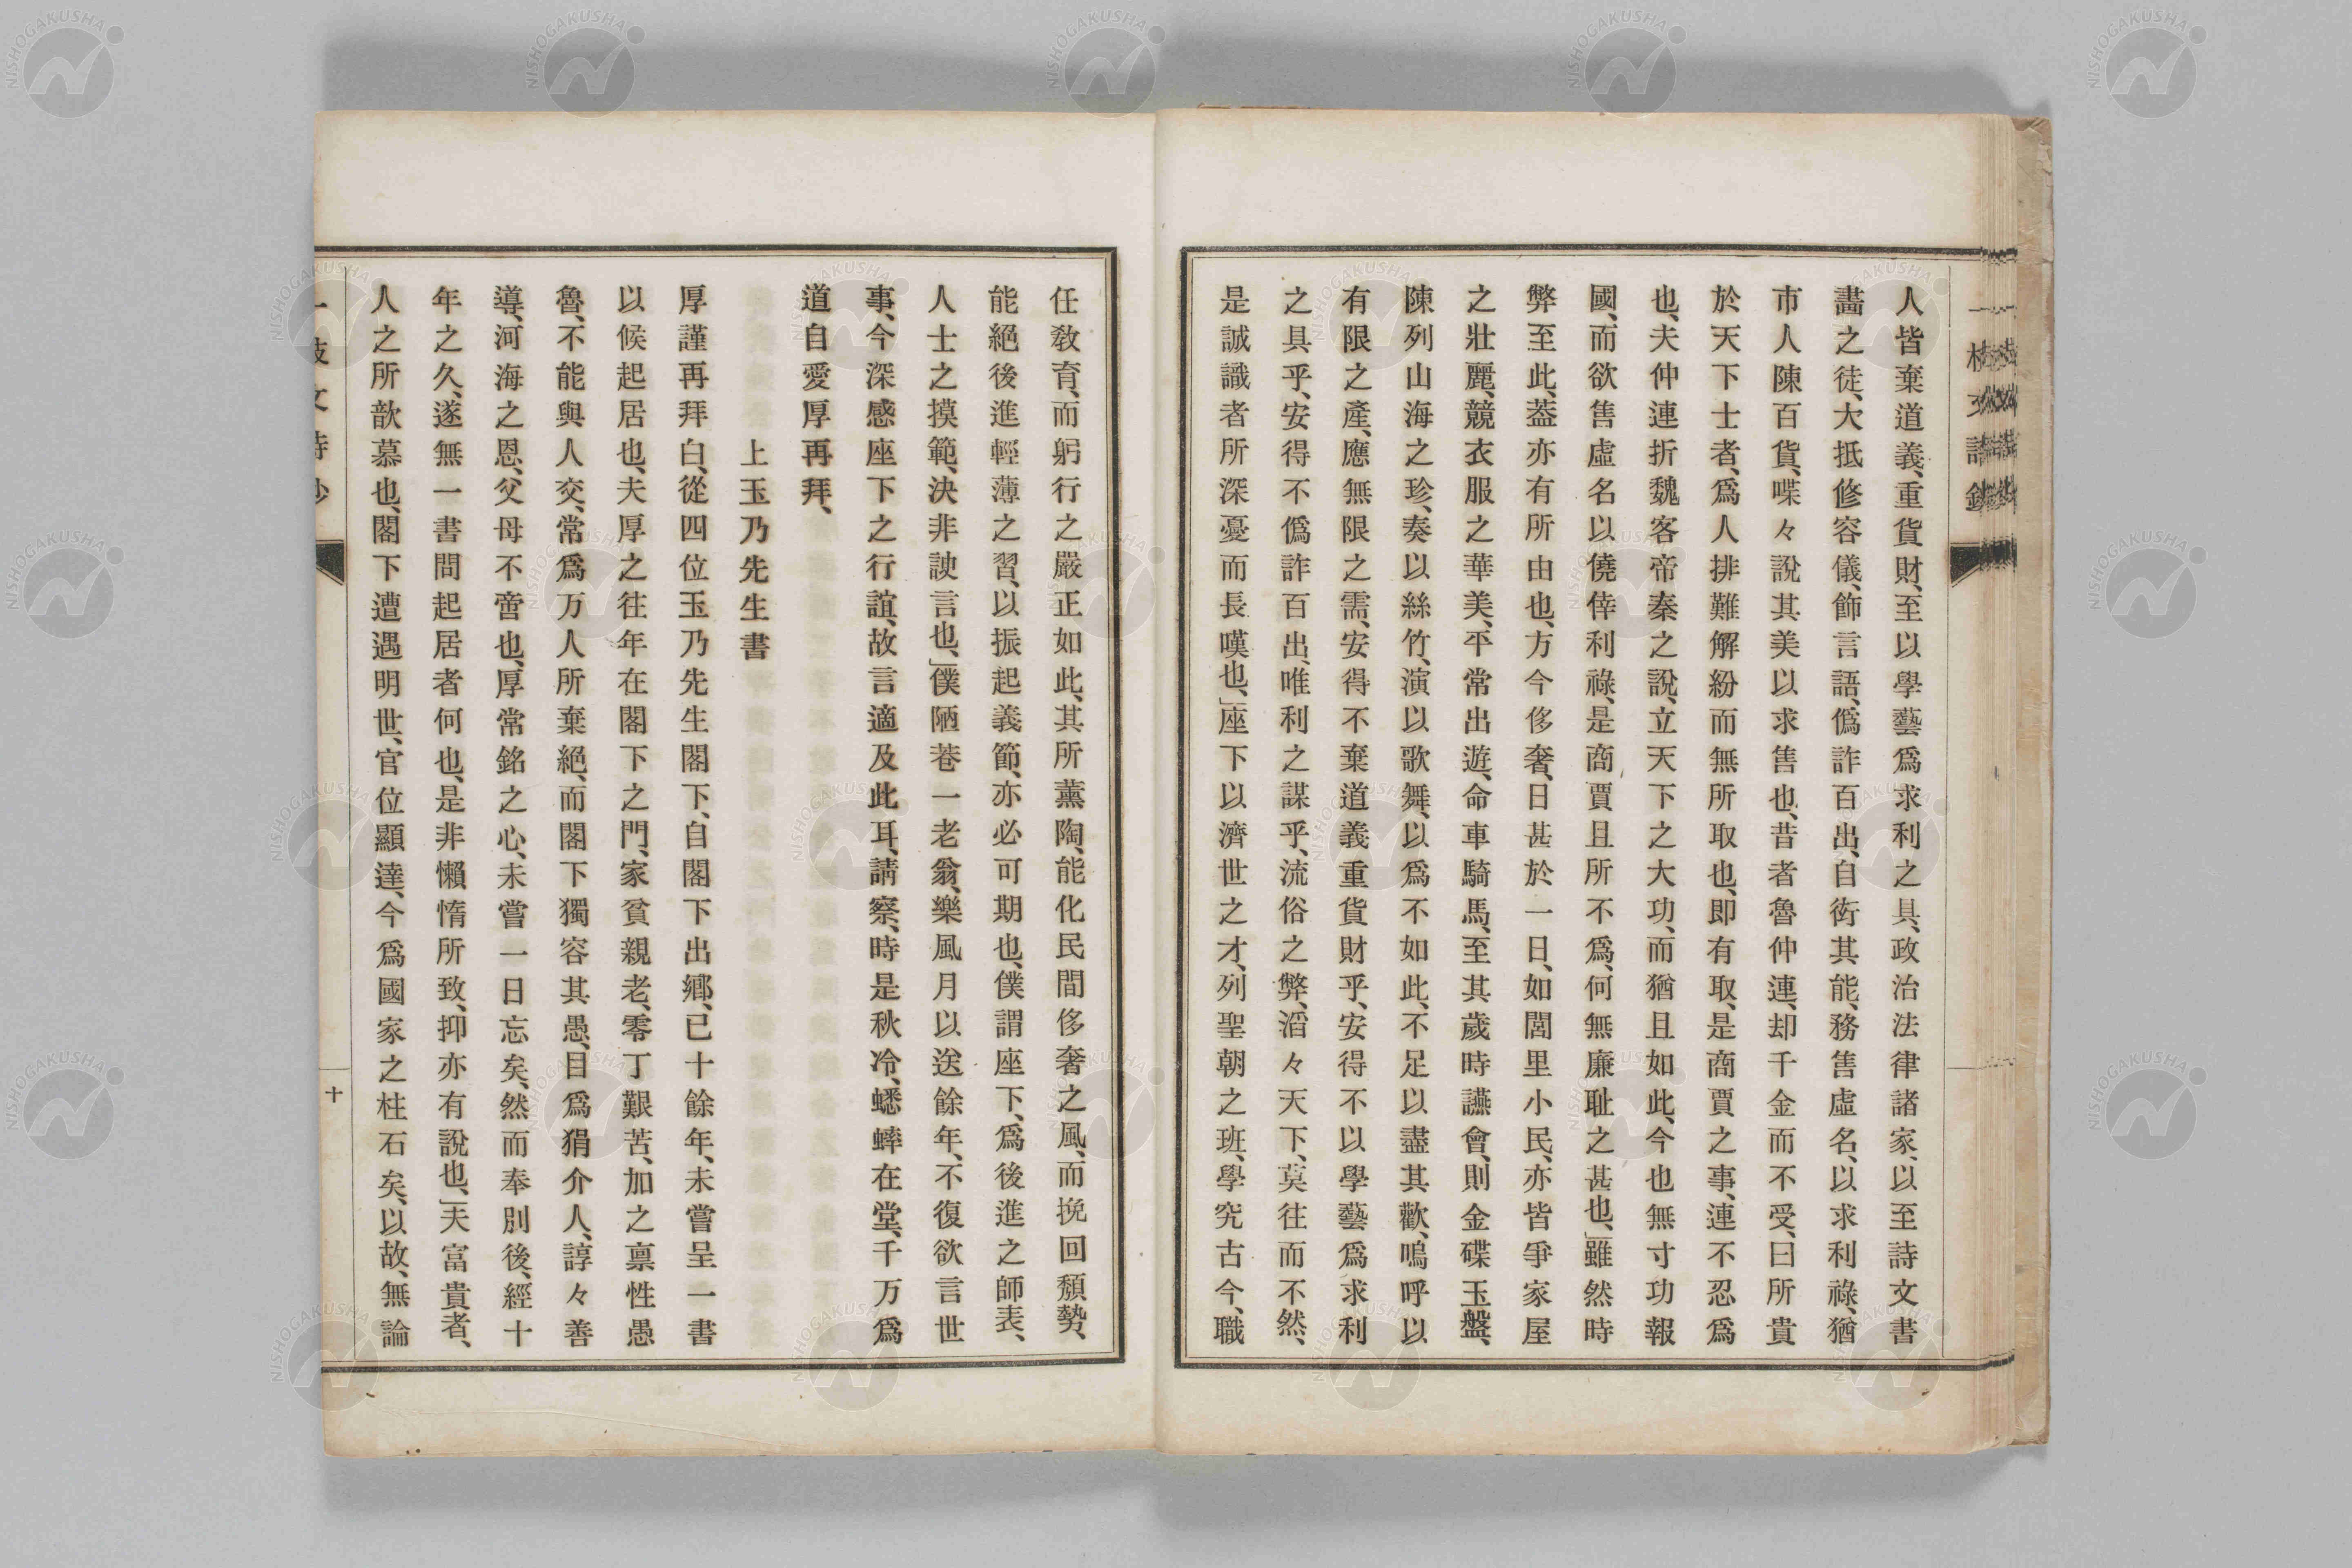 人皆棄道義、重貨財、至以學藝爲求利之具、政治法律諸家、以至詩文書
畵之徒、大抵修容儀、飾言語、僞詐百出、自衒其能、務售虛名、以求利祿、猶
市人陳百貨、喋々說其美以求售也、昔者魯仲連、却千金而不受、曰所貴
於天下士者、爲人排難解紛而無所取也、即有取、是商賈之事、連不忍爲
也、夫仲連折魏客帝秦之說、立天下之大功、而猶且如此、今也無寸功報
國、而欲售虛名以僥倖利祿、是商賈且所不爲、何無廉耻之甚也、」雖然時
弊至此、葢亦有所由也、方今侈奢、日甚於一日、如閭里小民、亦皆爭家屋
之壯麗、競衣服之華美、平常出遊、命車騎馬、至其歲時讌會、則金碟玉盤、
陳列山海之珍、奏以絲竹、演以歌舞、以爲不如此、不足以盡其歡、嗚呼以
有限之產、應無限之需、安得不棄道義重貨財乎、安得不以學藝爲求利
之具乎、安得不僞詐百出、唯利之謀乎、流俗之弊、滔々天下、莫往而不然、
是誠識者所深憂而長嘆也、」座下以濟世之才、列聖朝之班、學究古今、職
任敎育、而躬行之嚴正如此、其所薰陶、能化民間侈奢之風、而挽回頽勢、
能絕後進輕薄之習、以振起義節、亦必可期也、僕謂座下、爲後進之師表、
人士之摸範、決非諛言也、」僕陋巷一老翁、樂風月以送餘年、不復欲言世
事、今深感座下之行誼、故言適及此耳、請察、時是秋冷、蟋蟀在堂、千万爲
道自愛厚再拜、
上玉乃先生書
厚謹再拜白、從四位玉乃先生閣下、自閣下出鄕、已十餘年、未嘗呈一書
以候起居也、夫厚之往年在閣下之門、家貧親老、零丁艱苦、加之禀性愚
魯、不能與人交、常爲万人所棄絕、而閣下獨容其愚、目爲狷介人、諄々善
導、河海之恩、父母不啻也、厚常銘之心、未嘗一日忘矣、然而奉別後、經十
年之久、遂無一書問起居者何也、是非懶惰所致、抑亦有說也、」夫富貴者、
人之所歆慕也、閣下遭遇明世、官位顯達、今爲國家之柱石矣、以故、無論
十